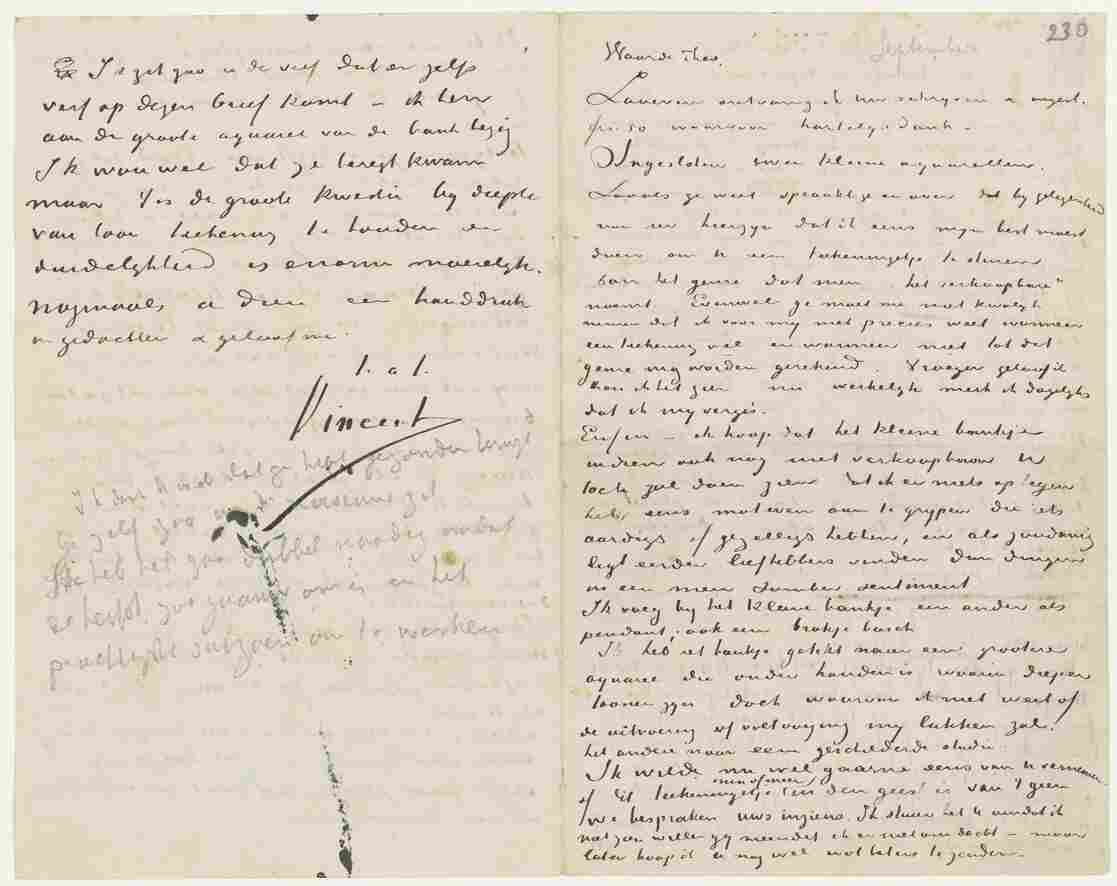 Ik zit zoo in de verf dat er zelfs
verf op dezen brief komt – ik ben
aan de groote aquarel van de bank bezig
Ik wou wel dat ze teregt kwam
maar 't is de groote kwestie bij diepte
van toon teekening te houden en
duidelijkheid is enorm moeielijk.
Nogmaals a dieu een handdruk
in gedachten & geloof me.
t. à t.
Vincent
Ik dat ge hebt gezonden terugt
ge zelf zoo in de zit
Ik heb het zoo dubbel noodig omdat
er herfst zoo gaauw om is en het
prachtigste saizoen om te werken
230
September
Waarde Theo.
Zooeven ontvang ik uw schrijven & ingesl.
frs. 50 waarvoor hartelijk dank –
Ingesloten twee kleine aquarellen.
Zooals ge weet spraakt ge er over dat bij gelegenheid
van uw hierzijn dat ik eens mijn best moest
doen om U een teekeningetje te sturen
van het genre dat men "het verkoopbare"
noemt. Evenwel ge moet me niet kwalijk
nemen dat ik voor mij niet precies weet wanneer
een teekening wel en wanneer niet tot dat
genre mag worden gerekend. Vroeger geloof ik
kon ik het zien nu werkelijk merk ik dagelijks
dat ik mij vergis.
Enfin – ik hoop dat het kleine bankje
indien ook nog niet verkoopbaar U
toch zal doen zien dat ik er niets op tegen
heb eens motieven aan te grijpen die iets
aardigs of gezelligs hebben, en als zoodanig
ligt eerder liefhebbers vinden dan dingen
in een meer somber sentiment
Ik voeg bij het kleine bankje een ander als
pendant, ook een brokje bosch
Ik heb het bankje getikt naar een grootere
aquarel die onder handen is waarin dieper
toonen zijn doch waarvan ik niet weet of
de uitvoering of voltooijing mij lukken zal.
het andere naar een geschilderde studie
Ik wilde nu wel gaarne eens van U vernemen
of dit teekeningetje min of meer in den geest is van 't geen
we bespraken uws inziens. Ik stuur het U omdat ik
niet zou willen gij meendet ik er niet om dacht – maar
later hoop ik U nog wel wat beters te zenden.